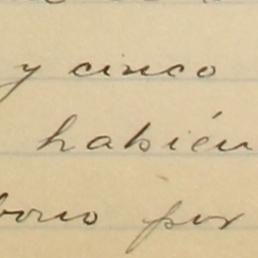 y cinco
habién
bono por